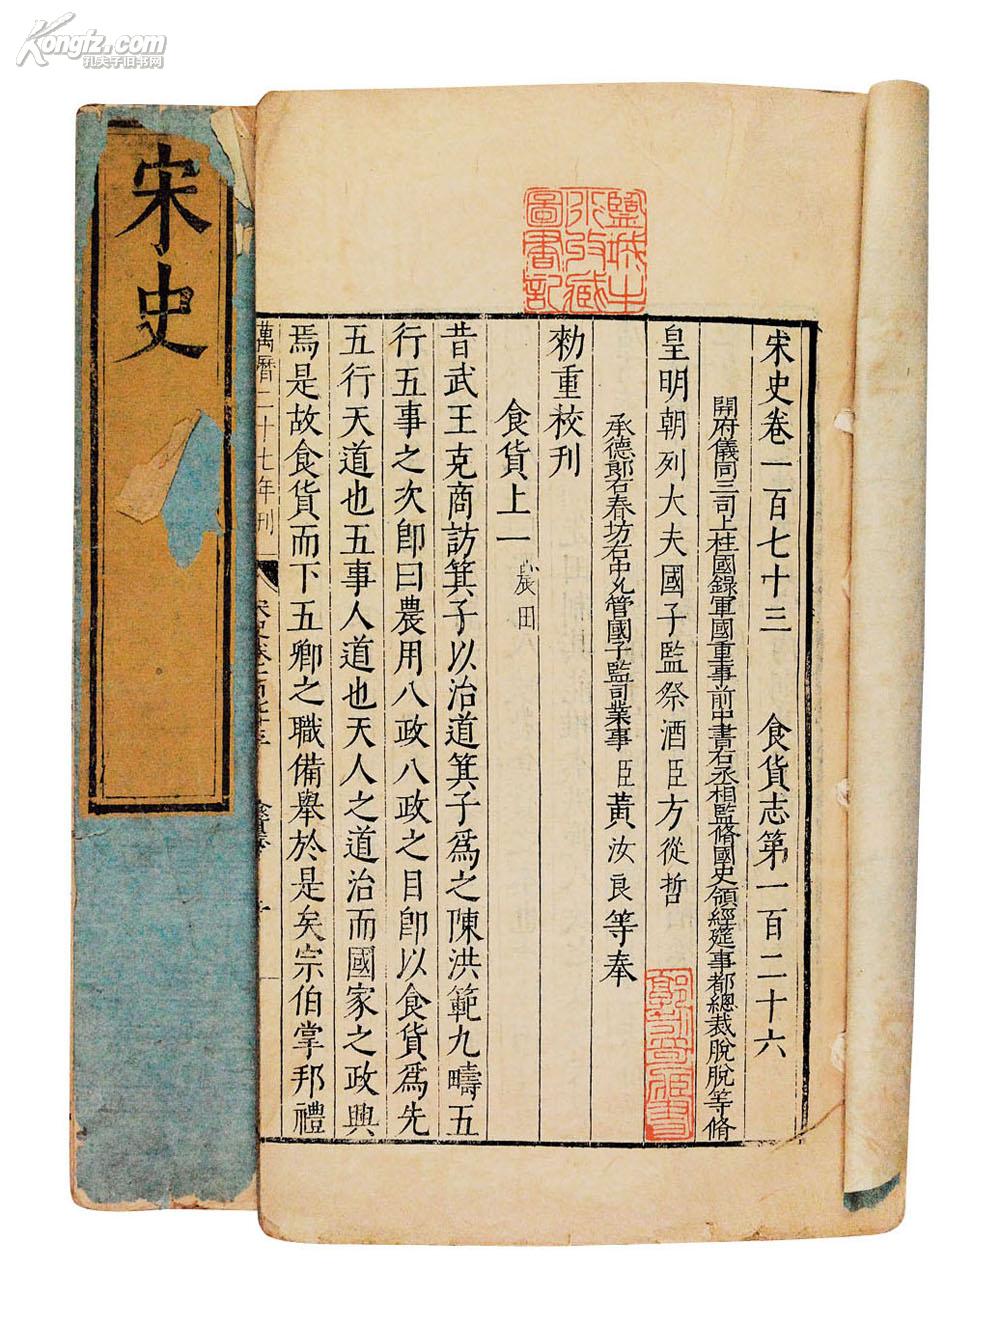 Kongfz.com
孔夫子旧书网
宋史
鹽城土
水收藏
圖書記
宋史卷一百七十三 食貨志第一百二十六
開府儀同三司上柱國錄軍國重事前中書右丞相監脩國史領經筵事都總裁脫脫等脩
皇明朝列大夫國子監祭酒臣方從哲
承德郎右春坊右中允管國子監司業事臣黃汝良等奉
勑重校刊
食貨上一 農田
昔武王克商訪箕子以治道箕子為之陳洪範九疇五
行五事之次卽曰農用八政八政之目卽以食貨為先
五行天道也五事人道也天人之道治而國家之政興
焉是故食貨而下五卿之職備舉於是矣宗伯掌邦禮
萬曆二十七年刊
宋史卷一百七十三